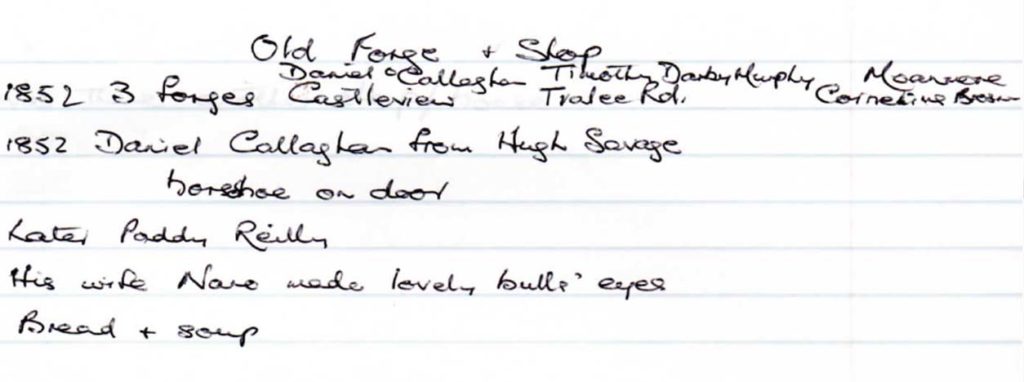 Old Forge + Shop
Daniel O Callaghan Timothy Darby Murphy
1852 3 forges Castleview Tralee Rd. Cornelius
1852 Daniel Callaghan from Hugh Savage
horseshoe on door
Later Paddy Reilly
His wife Nano made lovely bulls' eyes
Bread + soup